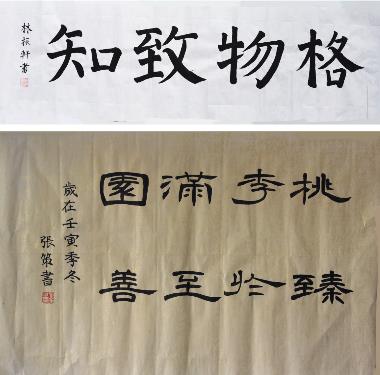 格物致知
林振軒書
桃李滿園
臻於至善
歲在壬寅季冬
張策書